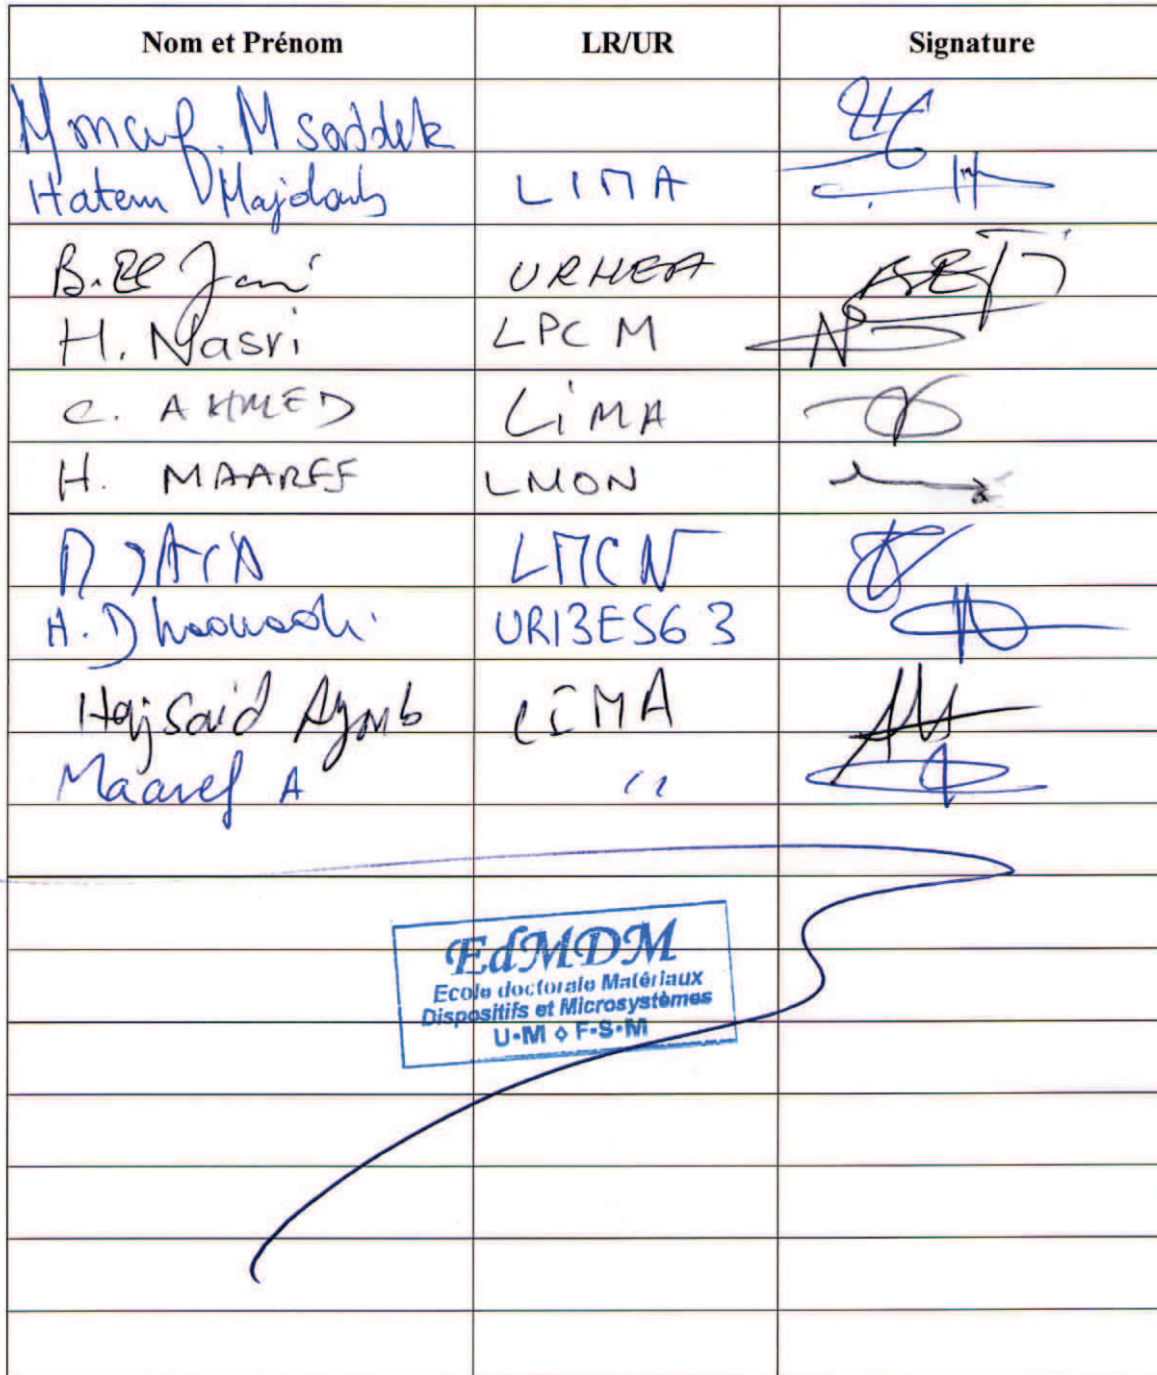 Nom et Prénom LR/UR Signature
Hatem Majdoub LIMA
B. El Jani URHEA
H. Nasri LPCM
C. AHMED LiMA
H. MAAREF LMON
LMCN
H. Dhaouadi UR13ES63
Hajsaid Ayoub LIMA
Maaref A "
EdMDM
Ecole doctorale Matériaux
Dispositifs et Microsystèmes
U-M ◊ F-S-M